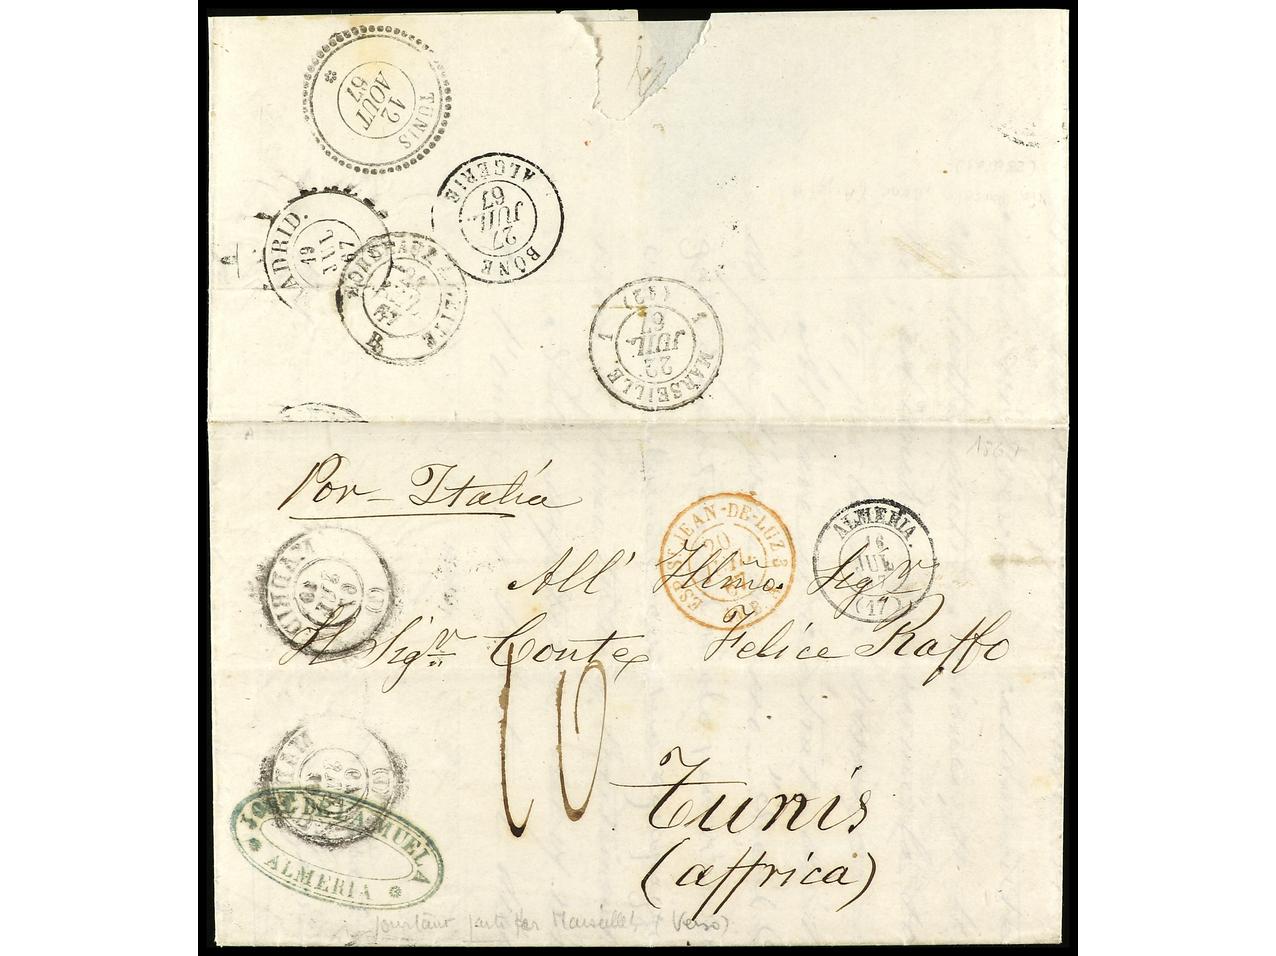 TUNIS
12
AOUT
67
BONE
27
JUIL
67
ALGERIE
MADRID.
19
JUL
67
BORDEAUX A CETTE
MARSEILLE
22
JUIL
67
1 (12) 1
1867
Por Italia
ESP. ST. JEAN-DE-LUZ 3
20
JUIL
67
ALMERIA
16
JUL
(17)
MADRID
(1)
All' Illmo. Sigr.
Il Sigr. Conte Felice Raffo
10
Tunis
(affrica)
MADRID
(1)
JOSE DE LA MUELA
ALMERIA
pourtant parti par Marseille (Verso)